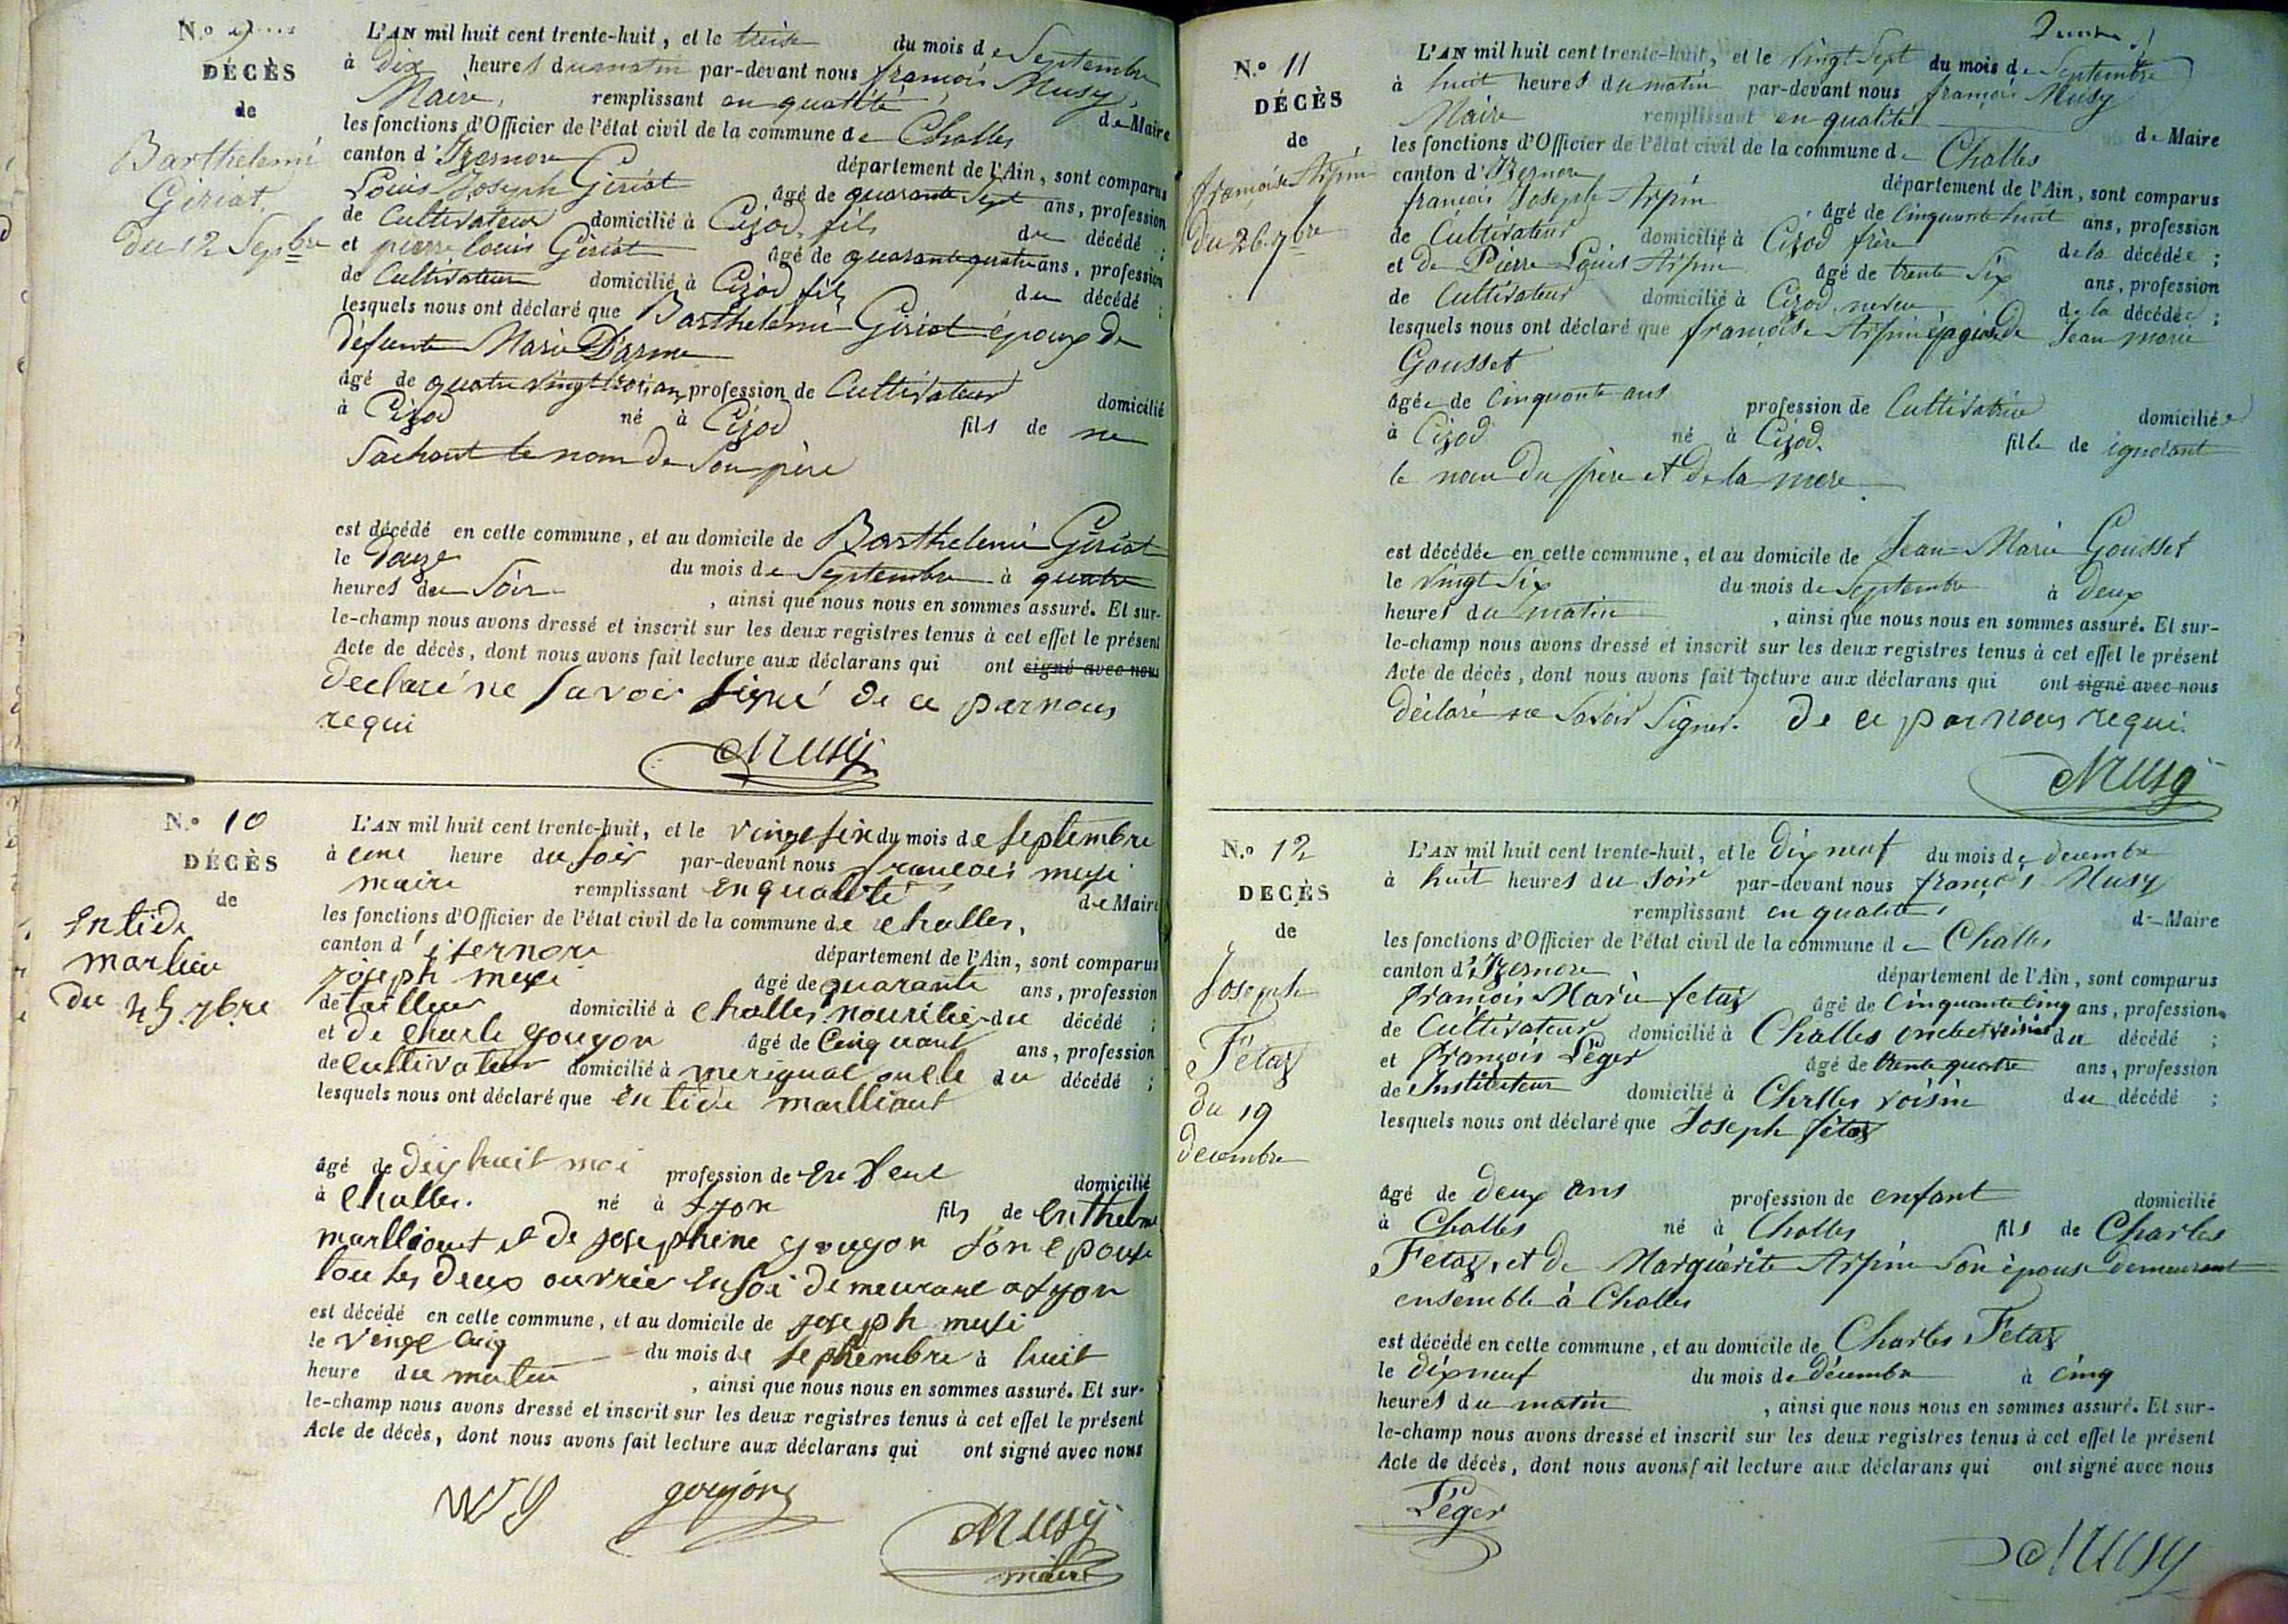 N.° 9
DÉCÈS
de
Barthelemi
Giriat
du 12 Sepbre
L'AN mil huit cent trente-huit, et le treise du mois de Septembre
à dix heures du matin par-devant nous françois Musy,
Maire, remplissant en qualité de Maire
les fonctions d'Officier de l'état civil de la commune de Challes
canton d'Izernore département de l'Ain, sont comparus
Louis Joseph Giriat âgé de quarante Sept ans, profession
de Cultivateur domicilié à Cizod, fils du décédé ;
et pierre louis Giriat âgé de quarante quatre ans, profession
de Cultivateur domicilié à Cizod fils du décédé ;
lesquels nous ont déclaré que Barthelemi Giriat époux de
défunte Marie Darme
âgé de quatre vingt trois ans profession de Cultivateur domicilié
à Cizod né à Cizod fils de ne
Sachant le nom de Son père
est décédé en cette commune, et au domicile de Barthelemi Giriat
le Douze du mois de Septembre à quatre
heures du Soir , ainsi que nous nous en sommes assuré. Et sur-
le-champ nous avons dressé et inscrit sur les deux registres tenus à cet effet le présent
Acte de décès, dont nous avons fait lecture aux déclarans qui ont signé avec nous
declaré ne Savoir Signé de ce par nous
requi
Musy
N.° 10
DÉCÈS
de
Entide
marlieu
du 25 7bre
L'AN mil huit cent trente-huit, et le vingt six du mois de Septembre
à une heure du Soir par-devant nous francois musi
maire remplissant en qualité de Maire
les fonctions d'Officier de l'état civil de la commune de challes,
canton d'iternore département de l'Ain, sont comparus
joseph musi âgé de quarante ans, profession
de tailleur domicilié à challes nourilie du décédé ;
et de charle gougon âgé de Cinquant ans, profession
de cultivateur domicilié à merignal oncle du décédé ;
lesquels nous ont déclaré que Entide marlliout
âgé de dix huit moi profession de Enfant domicilié
à challes. né à Lyon fils de Enthelme
marlliout et de josephine gougon Son epouse
tou tes deux ouvrier en Soi demeurant a Lyon
est décédé en cette commune, et au domicile de joseph musi
le vingt cinq du mois de Septembre à huit
heure du matin , ainsi que nous nous en sommes assuré. Et sur-
le-champ nous avons dressé et inscrit sur les deux registres tenus à cet effet le présent
Acte de décès, dont nous avons fait lecture aux déclarans qui ont signé avec nous
goujon
Musy
maire
N.° 11
DÉCÈS
de
françoise Arpin
du 26 7bre
L'AN mil huit cent trente-huit, et le vingt Sept du mois de Septembre
à huit heures du matin par-devant nous françois Musy
Maire remplissant en qualité de Maire
les fonctions d'Officier de l'état civil de la commune de Challes
canton d'Izernore département de l'Ain, sont comparus
françois Joseph Arpin âgé de Cinquante huit ans, profession
de Cultivateur domicilié à Cizod frère de la décédée ;
et de Pierre Louis Arpin âgé de trente Six ans, profession
de Cultivateur domicilié à Cizod, neveu de la décédée ;
lesquels nous ont déclaré que françoise Arpin épouse de Jean marie
Gousset
âgée de Cinquante ans profession de Cultivatrice domiciliée
à Cizod né à Cizod. fille de ignorant
le nom du père et de la mere
est décédée en cette commune, et au domicile de Jean Marie Gousset
le vingt Six du mois de Septembre à deux
heures du matin , ainsi que nous nous en sommes assuré. Et sur-
le-champ nous avons dressé et inscrit sur les deux registres tenus à cet effet le présent
Acte de décès, dont nous avons fait lecture aux déclarans qui ont signé avec nous
déclaré ne Savoir Signer. de ce par nous requi.
Musy
N.° 12
DÉCÈS
de
Joseph
Fétaz
du 19
decembre
L'AN mil huit cent trente-huit, et le dix neuf du mois de decembre
à huit heures du soir par-devant nous françois Musy
remplissant en qualité, de Maire
les fonctions d'Officier de l'état civil de la commune de Challes
canton d'Izernore département de l'Ain, sont comparus
françois Marie fetaz âgé de Cinquante Cinq ans, profession
de Cultivateur domicilié à Challes oncle et voisin du décédé ;
et françois Léger âgé de trente quatre ans, profession
de Instituteur domicilié à Challes voisin du décédé ;
lesquels nous ont déclaré que Joseph fétaz
âgé de deux ans profession de enfant domicilié
à Challes né à Challes fils de Charles
Fetaz, et de Marguérite Arpin Son épouse demeurant
ensemble à Challes
est décédé en cette commune, et au domicile de Charles Fetaz
le dix neuf du mois de décembre à cinq
heures du matin , ainsi que nous nous en sommes assuré. Et sur-
le-champ nous avons dressé et inscrit sur les deux registres tenus à cet effet le présent
Acte de décès, dont nous avons fait lecture aux déclarans qui ont signé avec nous
Léger
Musy